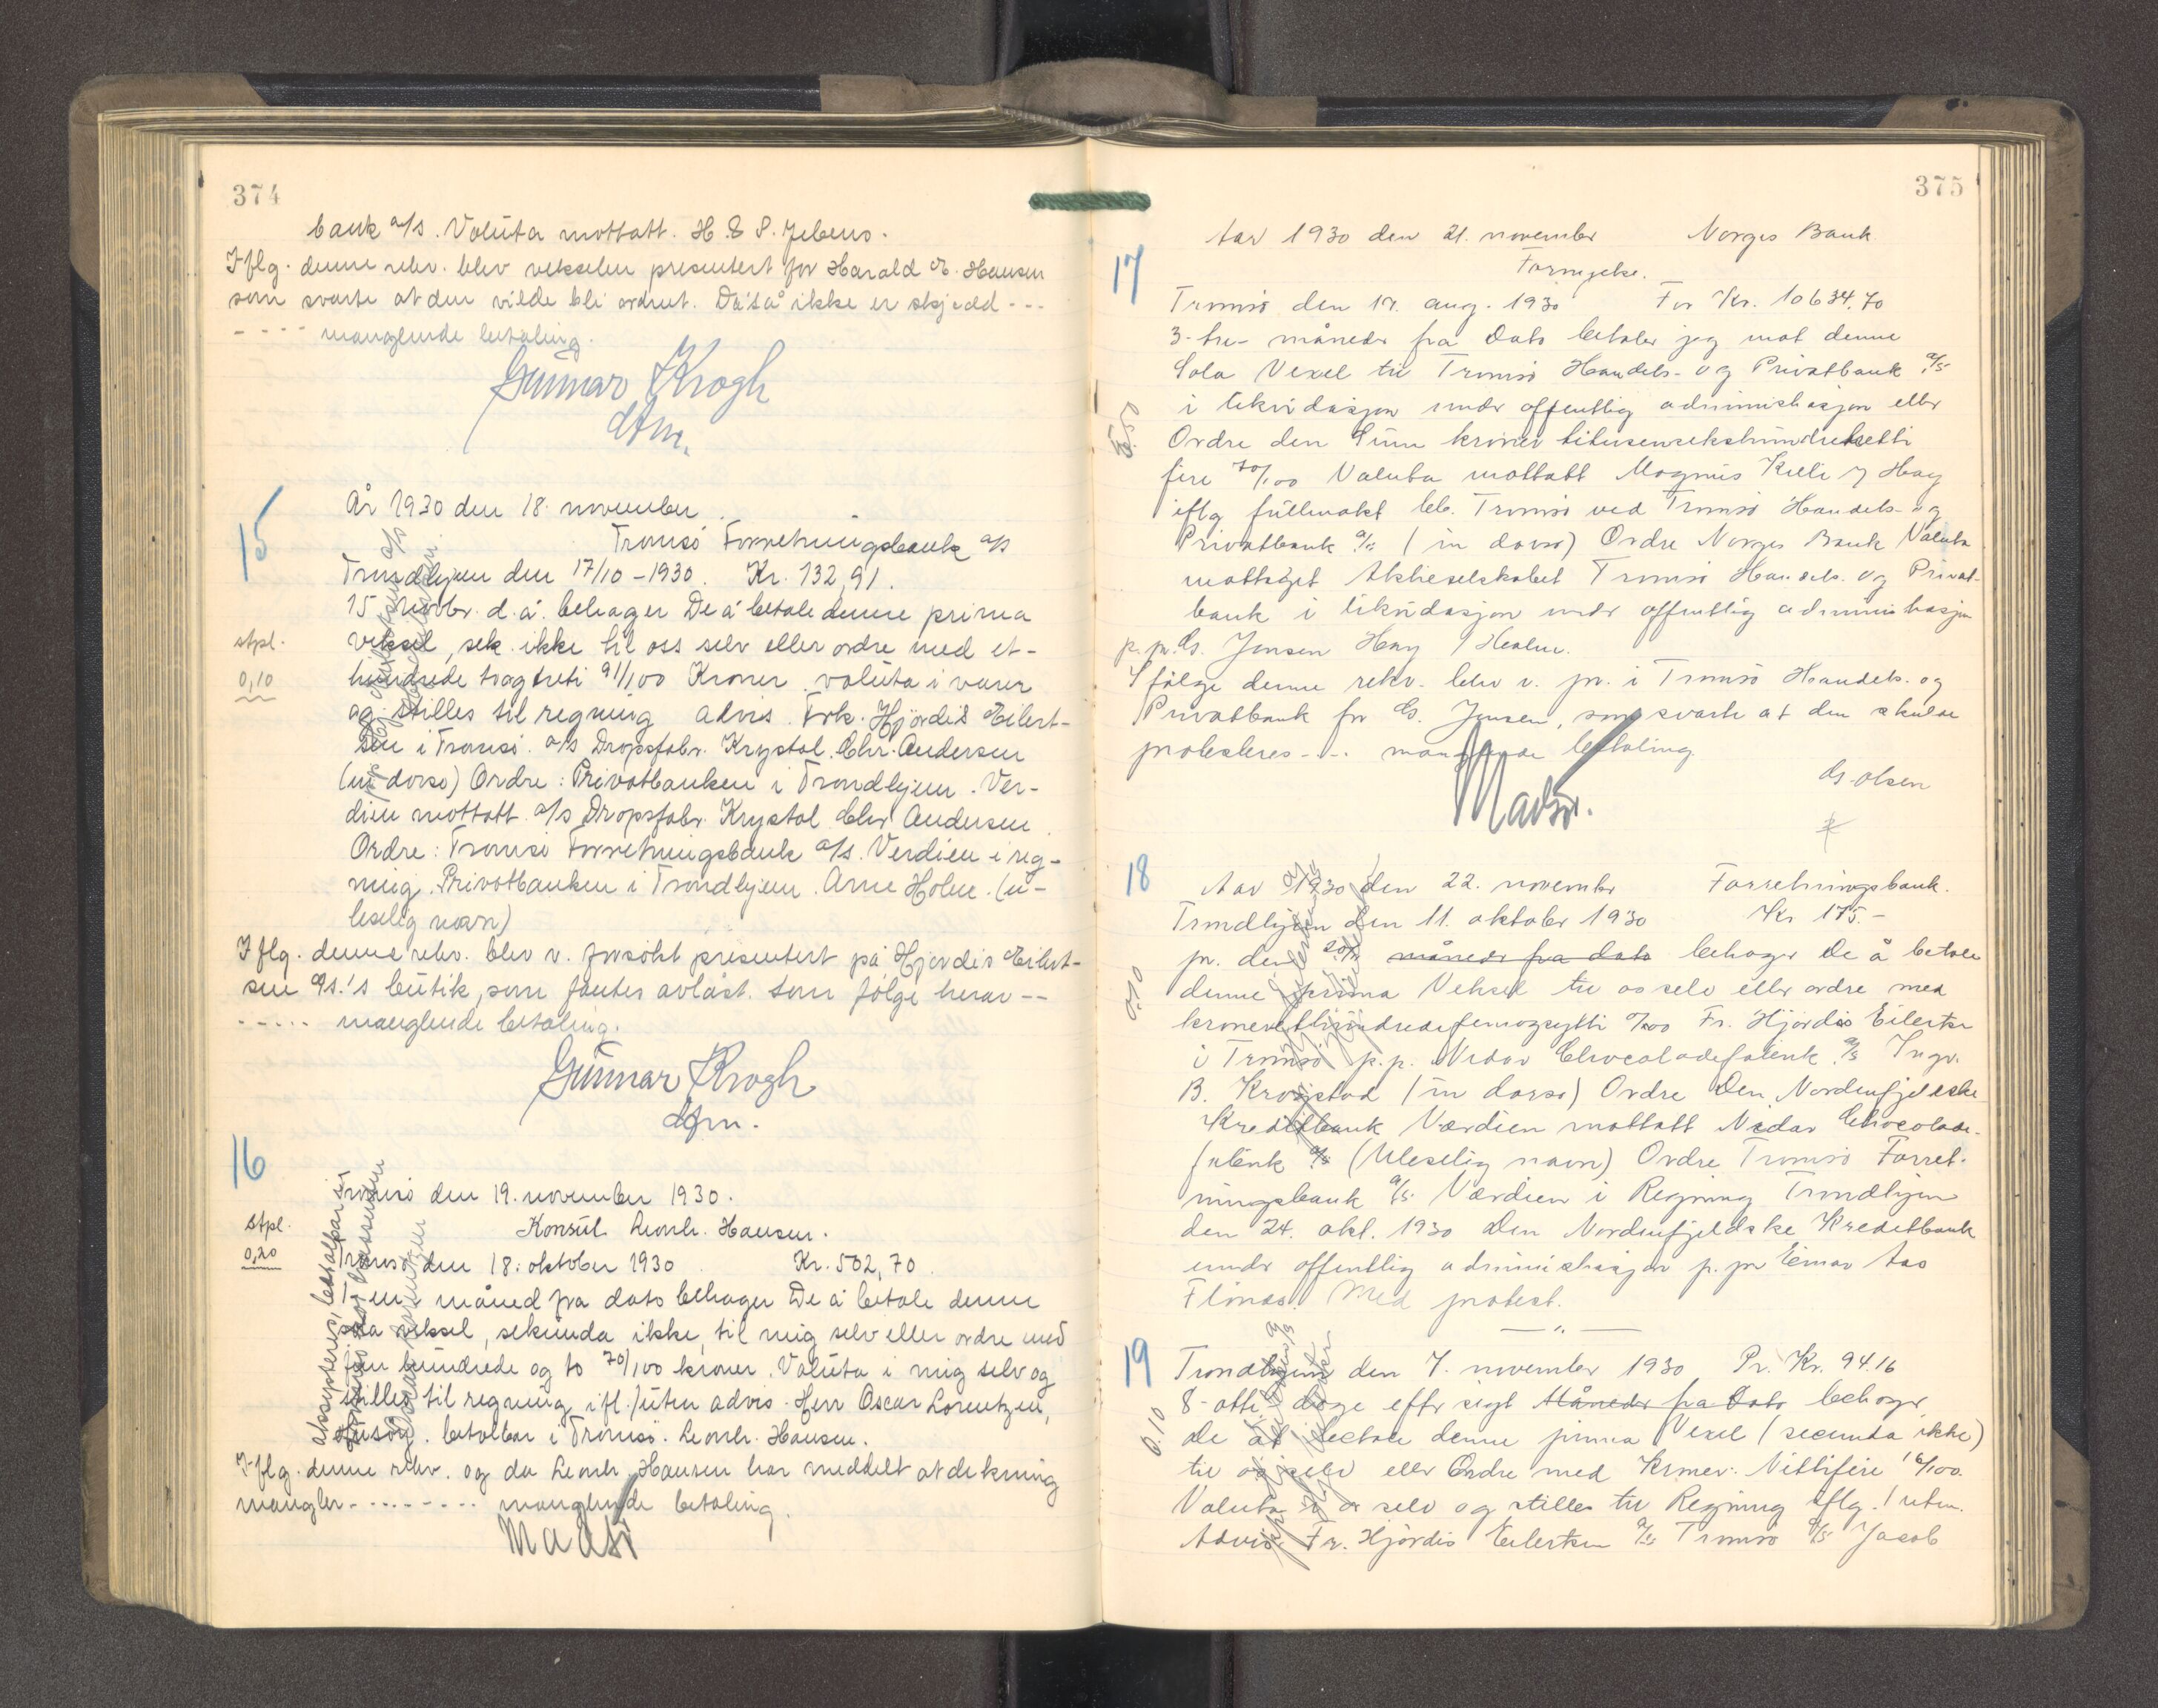 374
bank a/s. Valuta mottatt. H. & S. Jebens.
Iflg. denne rekv. blev vekselen presentert for Harald A. Hansen
som svarte at den vilde bli ordnet. Da så ikke er skjedd ---
---- manglende betaling.
Gunnar Krogh
dfm.
15
År 1930 den 18. november.
Tromsö Forretningsbank a/s
Trondhjem den 17/10-1930. Kr. 132,91.
15 novbr. d.å. behager De å betale denne prima
stpl.
veksel, sek. ikke til oss selv eller ordre med et-
0,10
hundrede togtreti 91/100 Kroner. valuta i varer
og stilles til regning advis. Frk. Hjördis Eilert-
sen i Tromsö. a/s Dropsfabr. Krystal. Chr. Andersen
(in dorso) Ordre: Privatbanken i Trondhjem. Ver-
dien mottatt a/s Dropsfabr. Krystal Chr Andersen.
Ordre: Tromsö Forretningsbank a/s. Verdien i reg-
ning. Privatbanken i Trondhjem. Arne Holm. (u-
leselig navn)
Iflg. denne rekv. blev v. forsökt presentert på Hjördis Eilert-
sen a/s.'s butik, som fantes avlåst. Som fölge herav --
----- manglende betaling.
Gunnar Krogh
dfm.
16
Tromsö den 19. november 1930.
stpl.
Konsul Leonh. Hansen.
0,20
Tromsö den 18. oktober 1930 Kr. 502,70.
1 en måned fra dato behager De å betale denne
sola veksel, sekunda ikke, til mig selv eller ordre med
fem hundrede og to 70/100 kroner. Valuta i mig selv og
stilles til regning ifl./uten advis. Herr Oscar Lorentzen,
betalbar i Tromsö. Leonh. Hansen.
Iflg. denne rekv. og da Leonh. Hansen har meddelt at dekning
mangler -------- manglende betaling.
375
Aar 1930 den 21. november Norges Bank.
17
Fornyelse.
Tromsö den 17. aug. 1930 For Kr. 10634.70
3-tre- måneder fra Dato betaler jeg mot denne
Sola Vexel til Tromsö Handels- og Privatbank a/s
i likvidasjon under offentlig administrasjon eller
Ordre den Sum kroner titusensekshundredetretti
fire 70/100 Valuta mottatt Magnus Killi
iflg fullmakt bb. Tromsö ved Tromsö Handels- og
Privatbank a/s (in dorso) Ordre Norges Bank Valuta
mottaget Aktieselskabet Tromsö Handels. og Privat-
bank i likvidasjon under offentlig administrasjon
p.p. G. Jensen
Ifølge denne rekv. blev v. pr. i Tromsö Handels. og
Privatbank for G. Jensen, som svarte at den skulde
protesteres --- manglende betaling
G. Olsen
18
Aar 1930 den 22. november Forretningsbank.
Trondhjem den 11. oktober 1930 Kr 175.-
pr. den måneder fra dato behager De å betale
0.10
denne prima Veksel til os selv eller ordre med
kroneretthundredefemogsytti 0/100 Fr. Hjördis Eilertsen
i Tromsö p.p. Nidar Chocoladefabrik a/s Ingv.
B. Krogstad (in dorso) Ordre Den Nordenfjeldske
Kreditbank Værdien mottatt Nidar Chocolade-
fabrik a/s (Uleselig navn) Ordre Tromsö Forret-
ningsbank a/s Værdien i Regning Trondhjem
den 24. okt. 1930 Den Nordenfjeldske Kreditbank
under offentlig administrasjon p.pr Einar Aas
Flönes. Med protest.
19
Trondhjem den 7. november 1930 Pr. Kr. 94.16
8-otte- dage efter sigt Måneder fra Dato behager
0.10
De at betale denne prima Vexel (secunda ikke)
til os selv eller Ordre med Kroner: Nittifire 16/100.
Valuta i os selv og stilles til Regning iflg. / uten.
Advis. Fr. Hjördis Eilertsen a/s Tromsö a/s Jacob